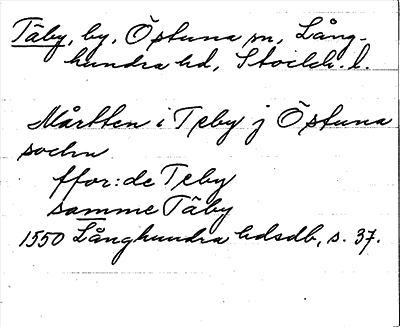 Täby, by, Östuna sn, Lång-
hundra hd, Stockh. l.
Mårtten i Tæby j Östuna
sochn
ffor:de Tæby
samme Täby
1550 Långhundra hdsdb, s. 37.